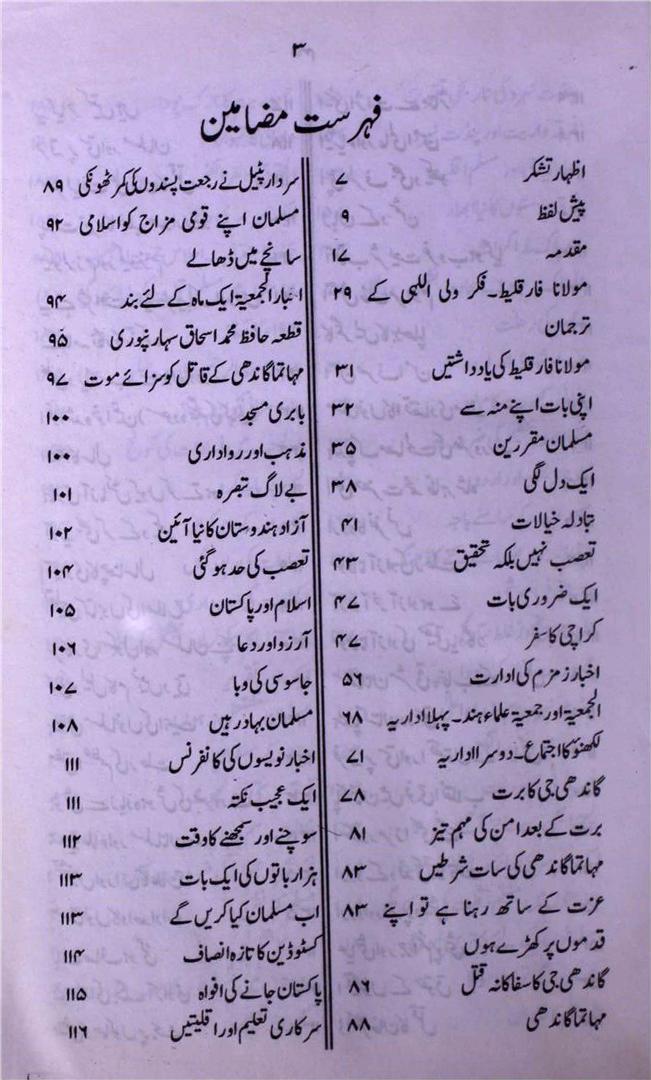 ۳
فہرست مضامین
اظہار تشکر ۷
پیش لفظ ۹
مقدمہ ۱۷
مولانا فارقلیط۔ فکر ولی اللہی کے ۲۹
ترجمان
مولانا فارقلیط کی یادداشتیں ۳۱
اپنی بات اپنے منہ سے ۳۲
مسلمان مقررین ۳۵
ایک دل لگی ۳۸
تبادلہ خیالات ۴۱
تعصب نہیں بلکہ تحقیق ۴۳
ایک ضروری بات ۴۷
کراچی کا سفر ۴۷
اخبار زمزم کی ادارت ۵۶
الجمعیۃ اور جمعیۃ علماء ہند۔ پہلا اداریہ ۶۸
لکھنؤ کا اجتماع۔ دوسرا اداریہ ۷۱
گاندھی جی کا برت ۷۸
برت کے بعد امن کی مہم تیز ۸۱
مہاتما گاندھی کی سات شرطیں ۸۳
عزت کے ساتھ رہنا ہے تو اپنے ۸۳
قدموں پر کھڑے ہوں
گاندھی جی کا سفاکانہ قتل ۸۶
مہاتما گاندھی ۸۸
سردار پٹیل نے رجعت پسندوں کی کمر ٹھونکی ۸۹
مسلمان اپنے قومی مزاج کو اسلامی ۹۲
سانچے میں ڈھالے
اخبار الجمعیۃ ایک ماہ کے لئے بند ۹۴
قطعہ حافظ محمد اسحاق سہارنپوری ۹۵
مہاتما گاندھی کے قاتل کو سزائے موت ۹۷
بابری مسجد ۱۰۰
مذہب اور رواداری ۱۰۰
بے لاگ تبصرہ ۱۰۱
آزاد ہندوستان کا نیا آئین ۱۰۲
تعصب کی حد ہوگئی ۱۰۴
اسلام اور پاکستان ۱۰۵
آرزو اور دعا ۱۰۶
جاسوسی کی وبا ۱۰۷
مسلمان بہادر ہیں ۱۰۸
اخبار نویسوں کی کانفرنس ۱۱۱
ایک عجیب نکتہ ۱۱۱
سوچنے اور سمجھنے کا وقت ۱۱۲
ہزار باتوں کی ایک بات ۱۱۳
اب مسلمان کیا کریں گے ۱۱۳
کسٹوڈین کا تازہ انصاف ۱۱۴
پاکستان جانے کی افواہ ۱۱۵
سرکاری تعلیم اور اقلیتیں ۱۱۶